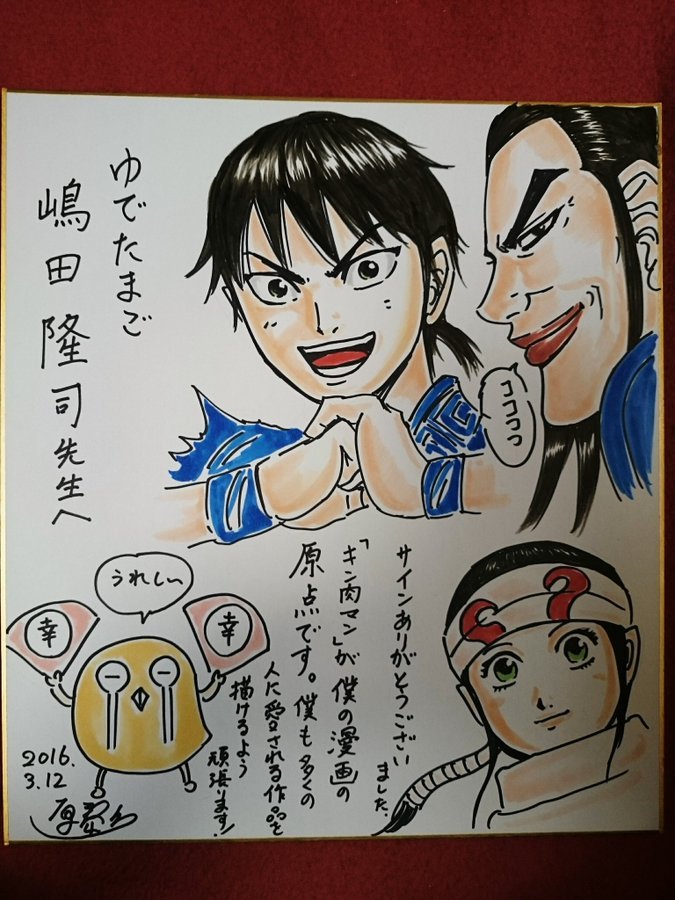 ゆでたまご
嶋田隆司先生へ
ココココッ
サインありがとうござい
ました。
「キン肉マン」が僕の漫画の
原点です。僕も多くの
人に愛される作品を
描けるよう
頑張ります!
うれしい
幸
幸
2016.
3.12
原泰久